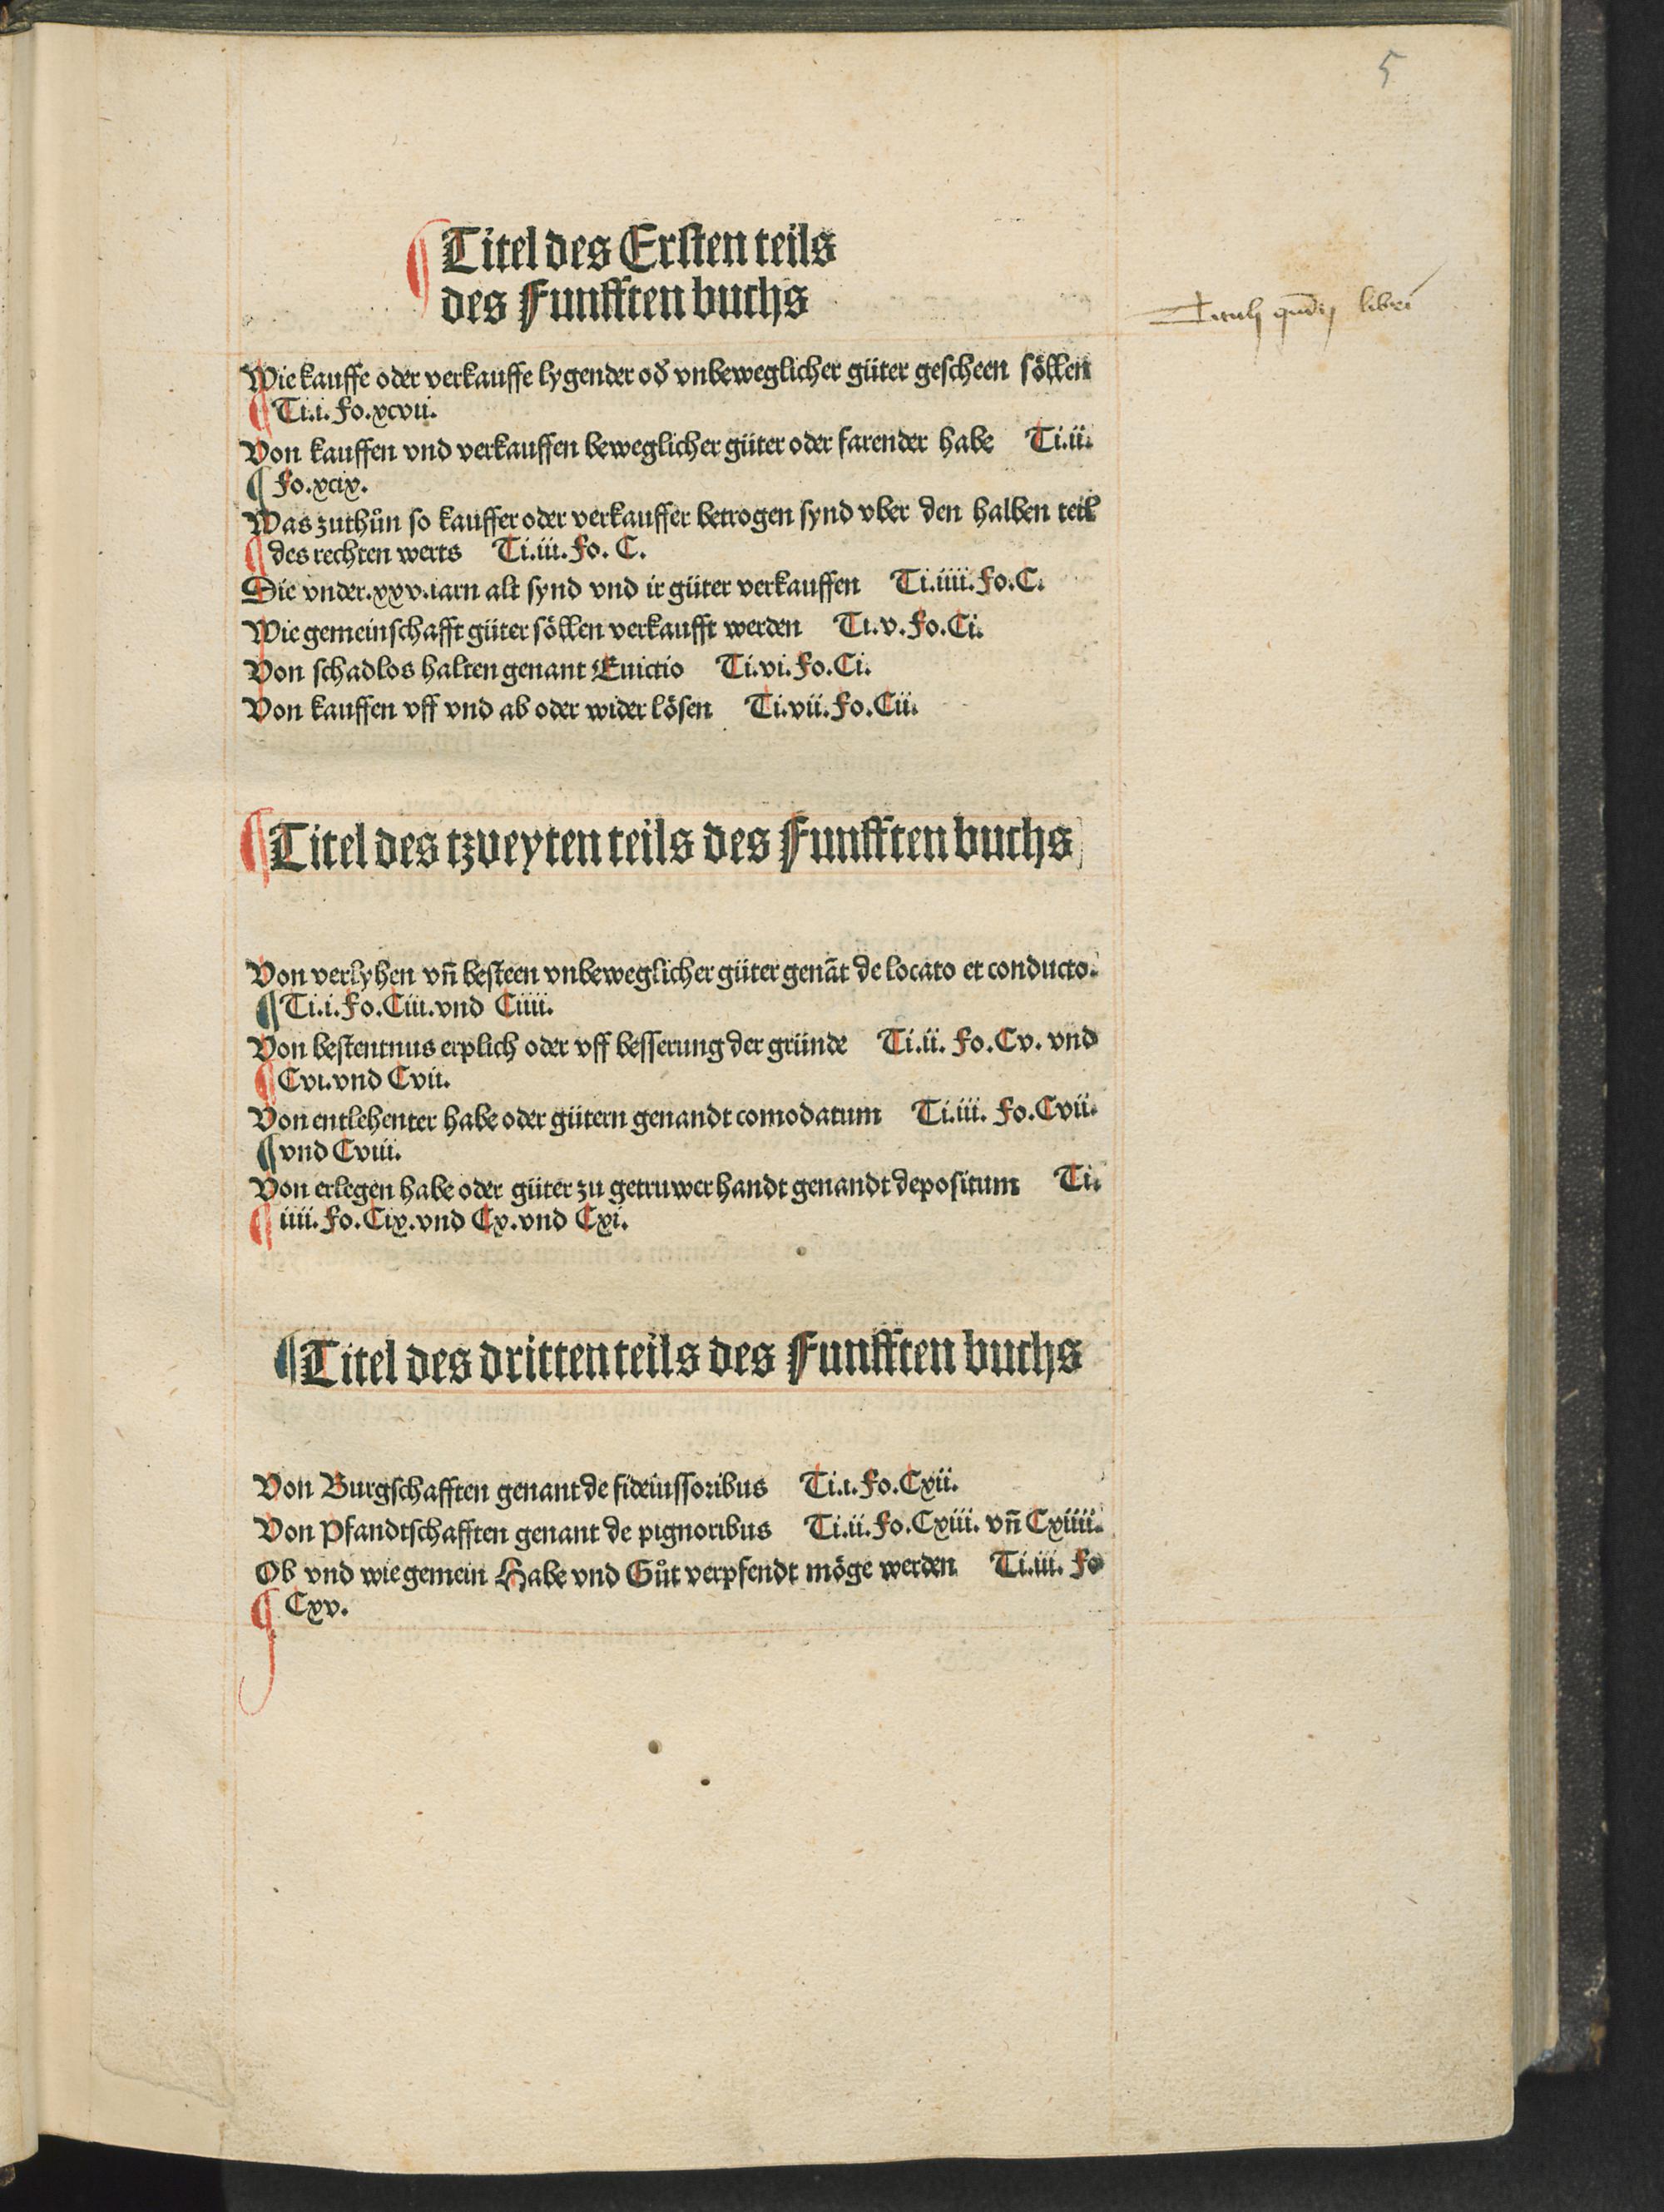 5
¶ Titel des Ersten teils
des Funfften buchs
libri
Wie kauffe oder verkauffe lygender od̕ vnbeweglicher güter gescheen söllen
¶ Ti.i. Fo.xcvii.
Von kauffen vnd verkauffen beweglicher güter oder farender habe Ti.ii.
¶ Fo.xcix.
Was zuthůn so kauffer oder verkauffer betrogen synd vber den halben teil
¶ des rechten werts Ti.iii. Fo. C.
Die vnder.xxv.iarn alt synd vnd ir güter verkauffen Ti.iiii. Fo.C.
Wie gemeinschafft güter söllen verkaufft werden Ti.v. Fo.Ci.
Von schadlos halten genant Euictio Ti.vi. Fo.Ci.
Von kauffen vff vnd ab oder wider lösen Ti.vii. Fo.Cii.
¶ Titel des tzweyten teils des Funfften buchs
Von verlyhen vn̄ besteen vnbeweglicher güter genāt de locato et conducto.
¶ Ti.i. Fo.Ciii.vnd Ciiii.
Von bestentnus erplich oder vff besserung der gründe Ti.ii. Fo.Cv. vnd
¶ Cvi.vnd Cvii.
Von entlehenter habe oder gütern genandt comodatum Ti.iii. Fo.Cvii.
¶ vnd Cviii.
Von erlegen habe oder güter zu getruwer handt genandt depositum Ti.
¶ iiii. Fo.Cix.vnd Cx.vnd Cxi.
¶ Titel des dritten teils des Funfften buchs
Von Burgschafften genant de fideiussoribus Ti.i. Fo.Cxii.
Von Pfandtschafften genant de pignoribus Ti.ii. Fo.Cxiii. vn̄ Cxiiii.
Ob vnd wie gemein Habe vnd Gůt verpfendt möge werden Ti.iii. Fo
¶ Cxv.